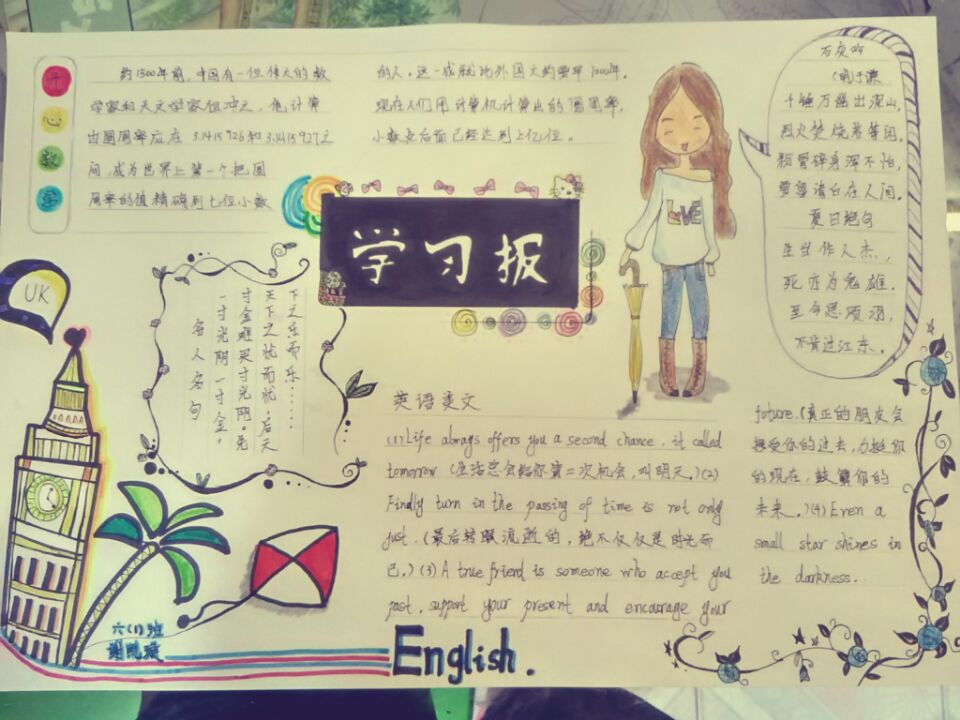 开
心
数
学
约1500年前，中国有一位伟大的数
学家和天文学家祖冲之，他计算
出圆周率应在3.1415926和3.1415927之
间，成为世界上第一个把圆
周率的值精确到七位小数
的人。这一成就比外国大约要早1000年。
现在人们用计算机计算出的圆周率，
小数点后面已经达到上亿位。
学习报
LOVE
石灰吟
(明)于谦
千锤万凿出深山，
烈火焚烧若等闲。
粉骨碎身浑不怕，
要留清白在人间。
夏日绝句
生当作人杰，
死亦为鬼雄。
至今思项羽，
不肯过江东。
UK
名人名句
一寸光阴一寸金，
寸金难买寸光阴。先
天下之忧而忧，后天
下之乐而乐……
英语美文
(1)Life always offers you a second chance, it called
tomorrow (生活总会给你第二次机会，叫明天。)(2)
Findly turn in the passing of time is not only
just.(最后转眼流逝的，绝不仅仅是时光而
已。)(3)A true friend is someone who accept you
past, support your present and encourage your
future.(真正的朋友会
接受你的过去，力挺你
的现在，鼓舞你的
未来。)(4)Even a
small star shines in
the darkness.
六(1)班
English.